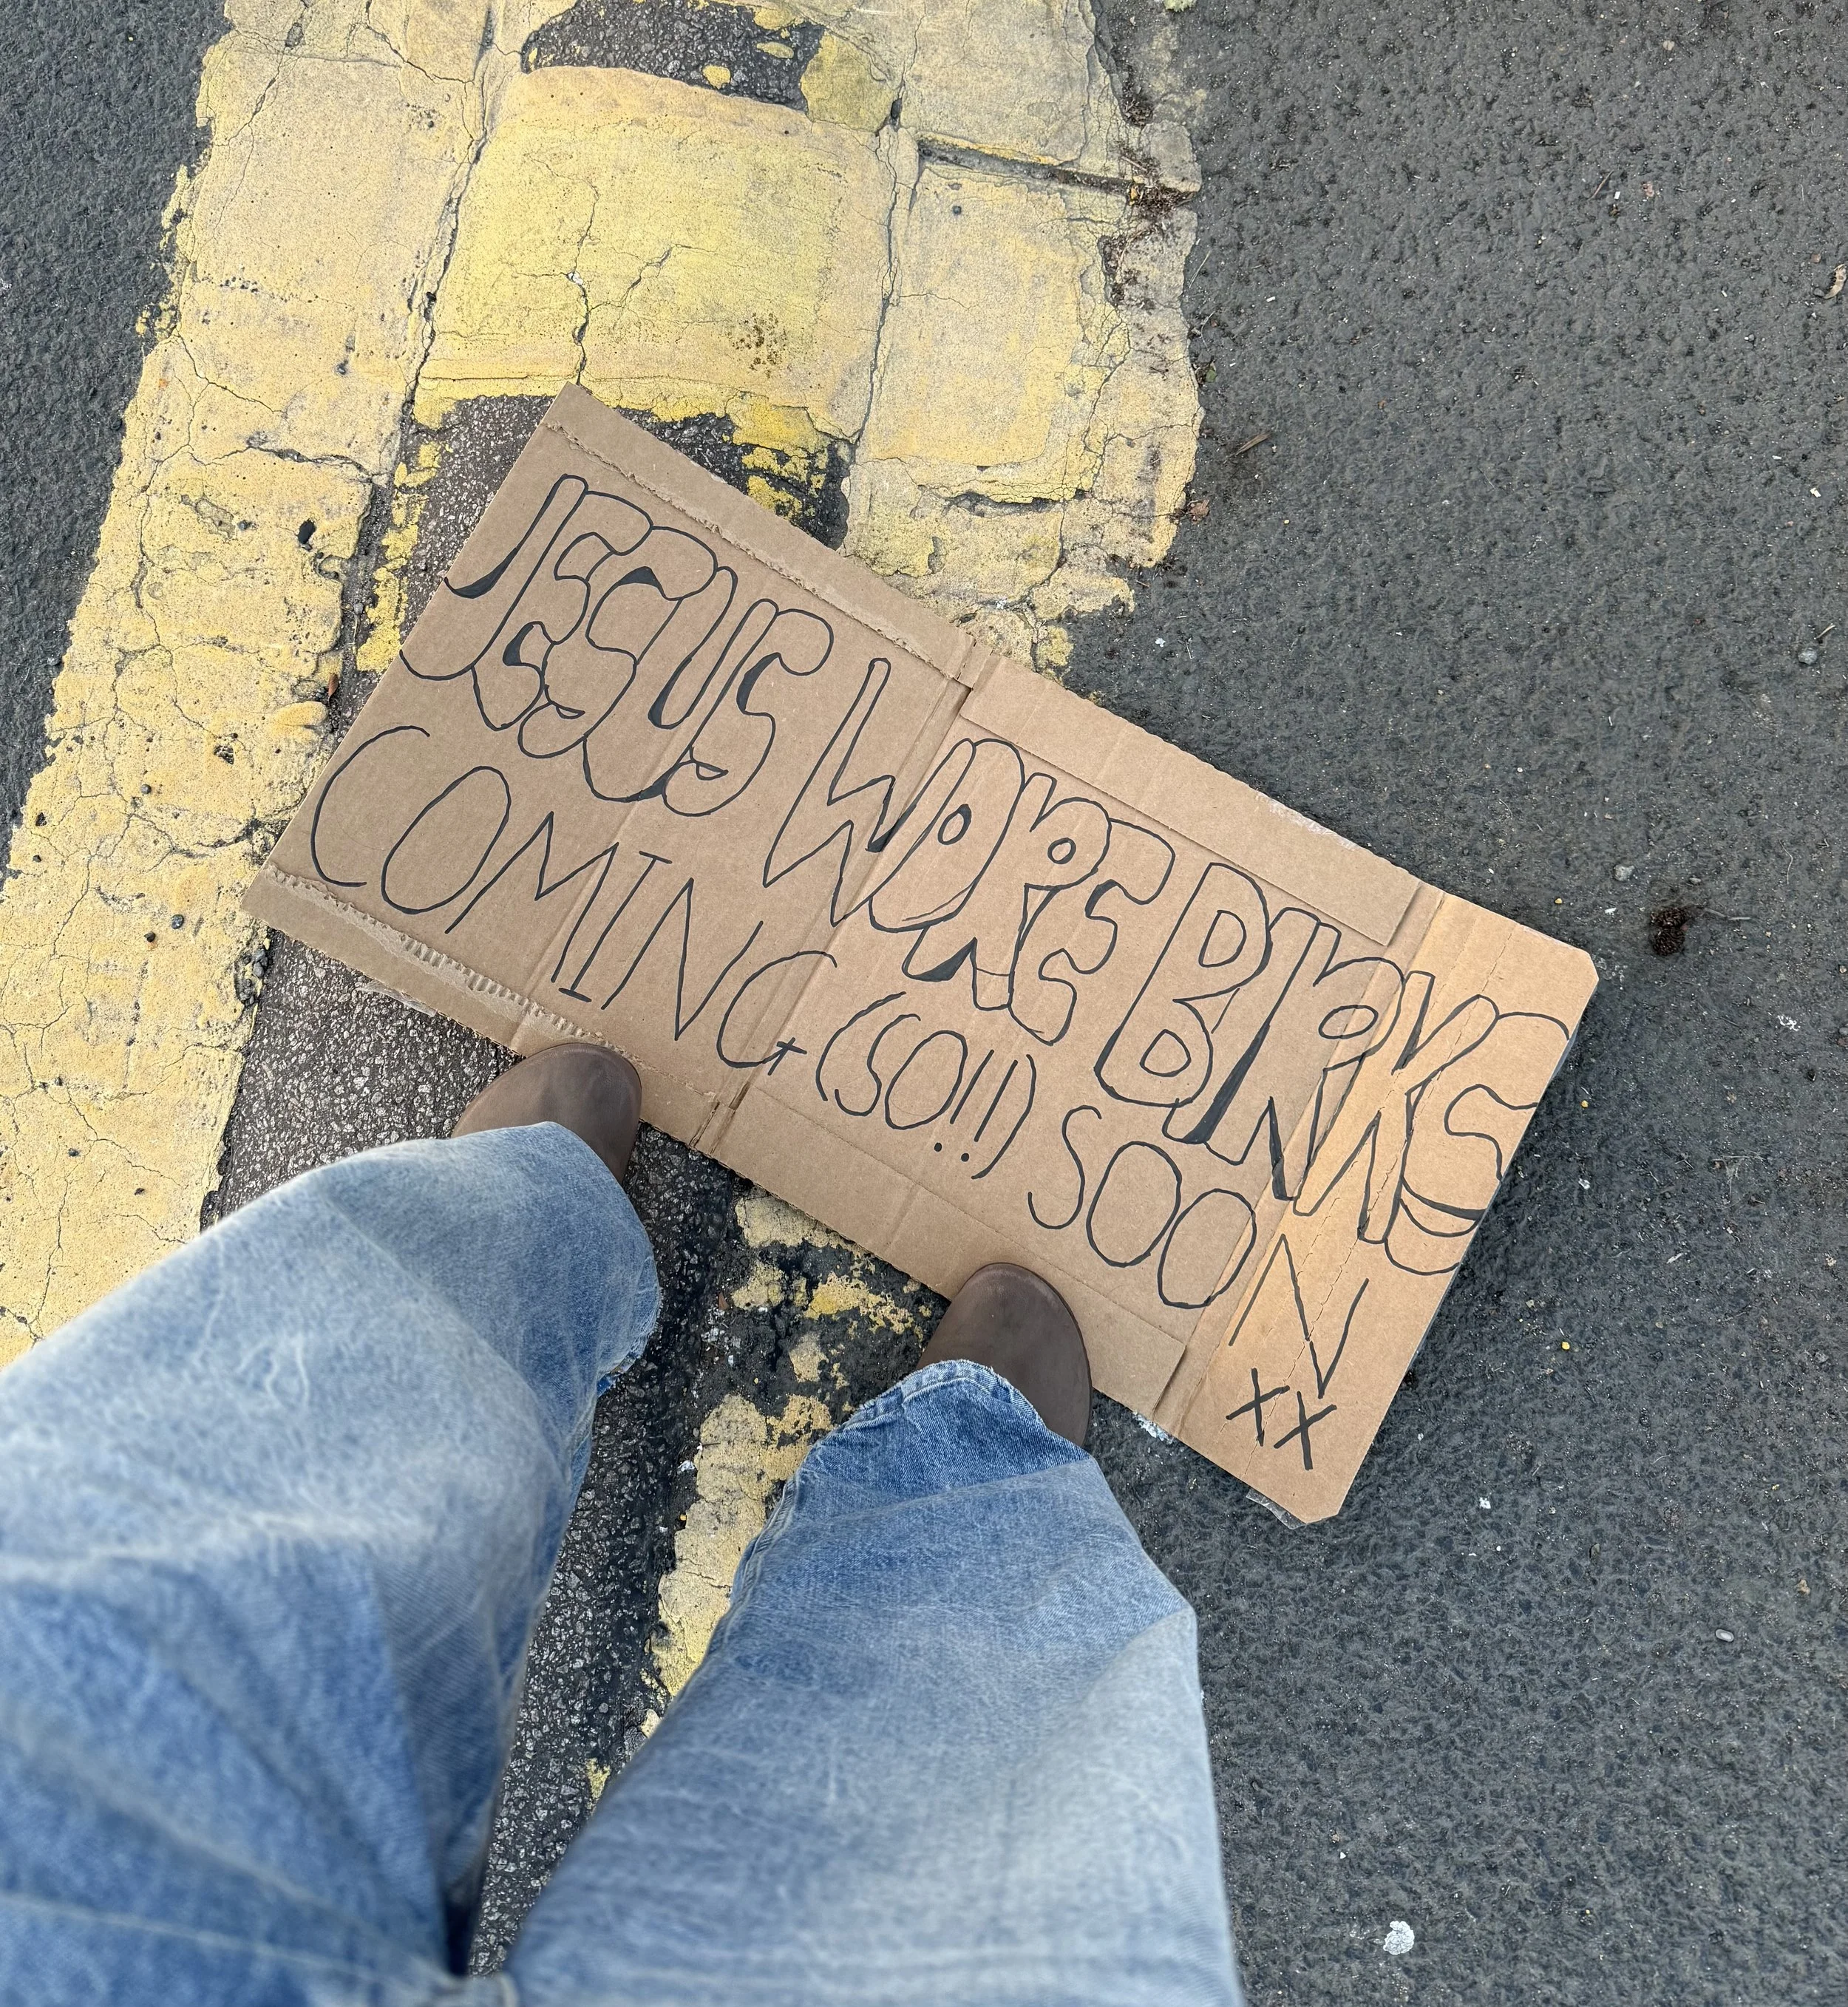 JESUS WORE BIRKS
COMING (SO!!) SOON
XX